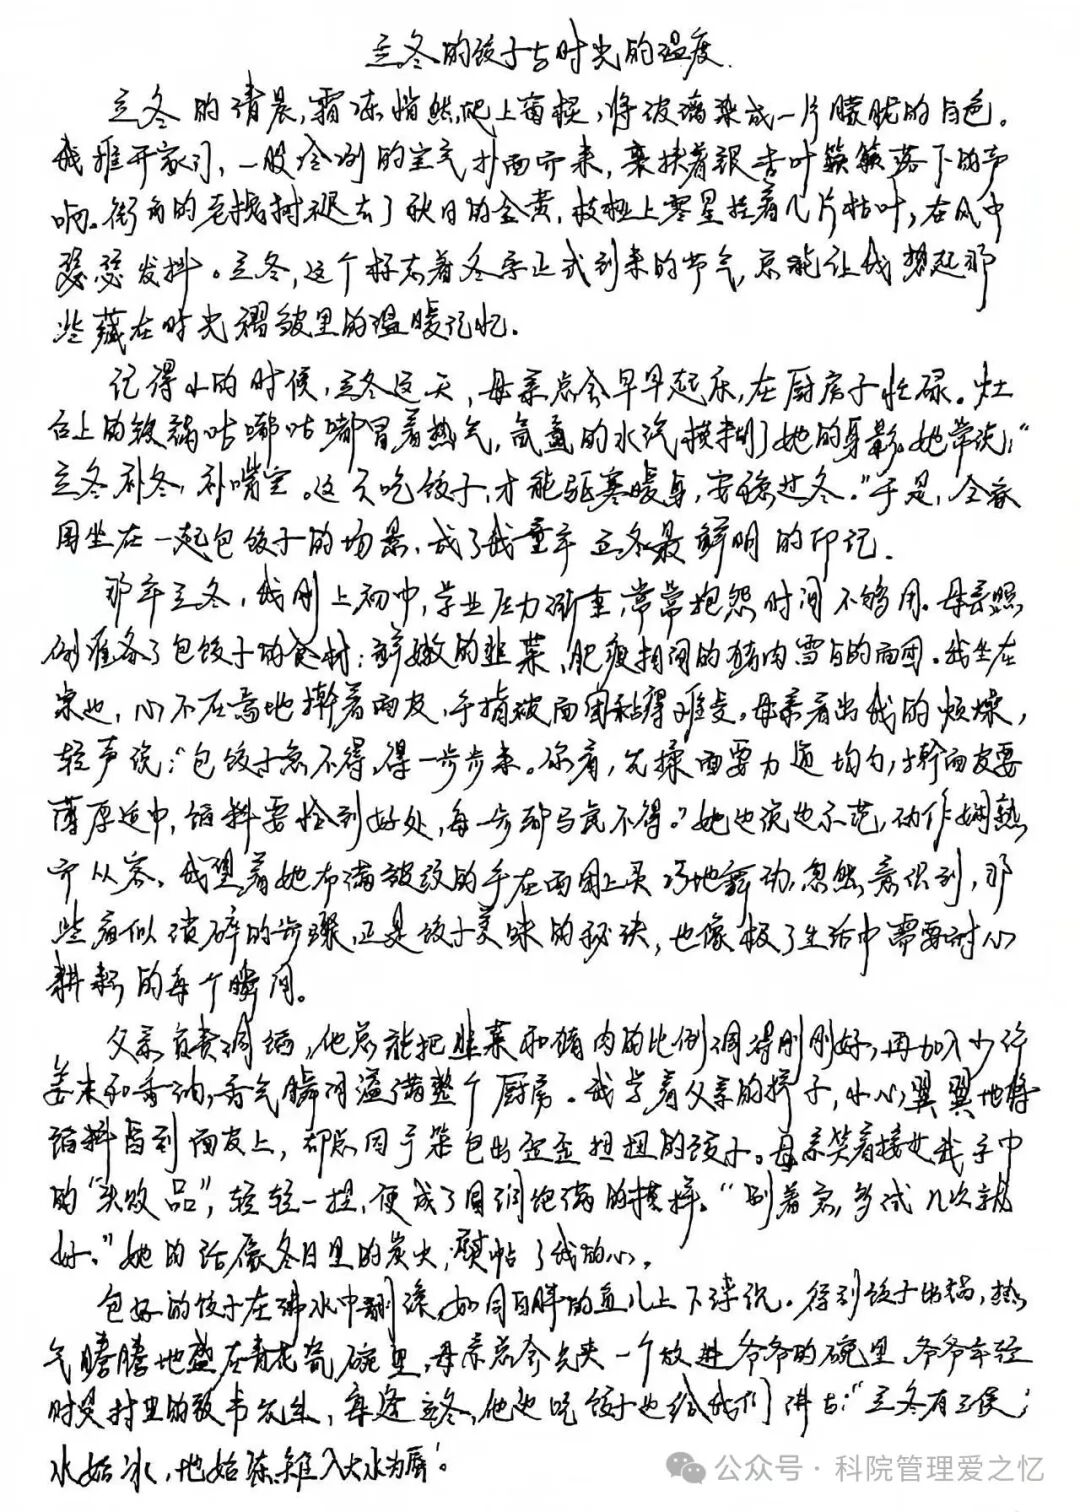 立冬的饺子与时光的温度.
立冬的清晨,霜冻悄然爬上窗棂,将玻璃染成一片朦胧的白色。
我推开家门,一股冷冽的空气扑面而来,裹挟着银杏叶簌簌落下的声
响。街角的老槐树褪去了秋日的金黄,枝桠上零星挂着几片枯叶,在风中
瑟瑟发抖。立冬,这个标志着冬季正式到来的节气,总能让我想起那
些藏在时光褶皱里的温暖记忆.
记得小的时候,立冬这天,母亲总会早早起床,在厨房子忙碌。灶
台上的铁锅咕嘟咕嘟冒着热气,氤氲的水汽模糊了她的身影。她常说:“
立冬补冬,补嘴空。这天吃饺子,才能驱寒暖身,安稳过冬。”于是,全家
围坐在一起包饺子的场景,成了我童年立冬最鲜明的印记.
那年立冬,我刚上初中,学业压力渐重,常常抱怨时间不够用。母亲照
例准备了包饺子的食材:鲜嫩的韭菜、肥瘦相间的猪肉雪白的面团。我坐在
桌边,心不在焉地擀着面皮,手指被面团粘得难受。母亲看出我的烦燥,
轻声说:“包饺子急不得,得一步步来。你看,先揉面要力道均匀,擀面皮要
薄厚适中,馅料要恰到好处,每一步都马虎不得。”她边说边示范,动作娴熟
而从容。我望着她布满皱纹的手在面团上灵巧地舞动,忽然意识到,那
些看似琐碎的步骤,正是饺子美味的秘诀,也像极了生活中需要耐心
耕耘的每个瞬间。
父亲负责调馅,他总能把韭菜和猪肉的比例调得刚刚好,再加入少许
姜末和香油,香气瞬间溢满整个厨房。我学着父亲的样子,小心翼翼地将
馅料舀到面皮上,却总因手笨包出歪歪扭扭的饺子。母亲笑着接过我手中
的“失败品”,轻轻一捏,便成了圆润饱满的模样。“别着急,多试几次就
好。”她的话像冬日里的炭火,熨帖了我的心。
包好的饺子在沸水中翻滚,如同白胖的鱼儿上下浮沉。待到饺子出锅,热
气腾腾地盛在青花瓷碗里,母亲总会先夹一个放进爷爷的碗里。爷爷年轻
时是村里的教书先生,每逢立冬,他边吃饺子边给我们讲古:“立冬有三侯;
水始冰,地始冻,雉入大水为蜃.
公众号·科院管理爱之忆